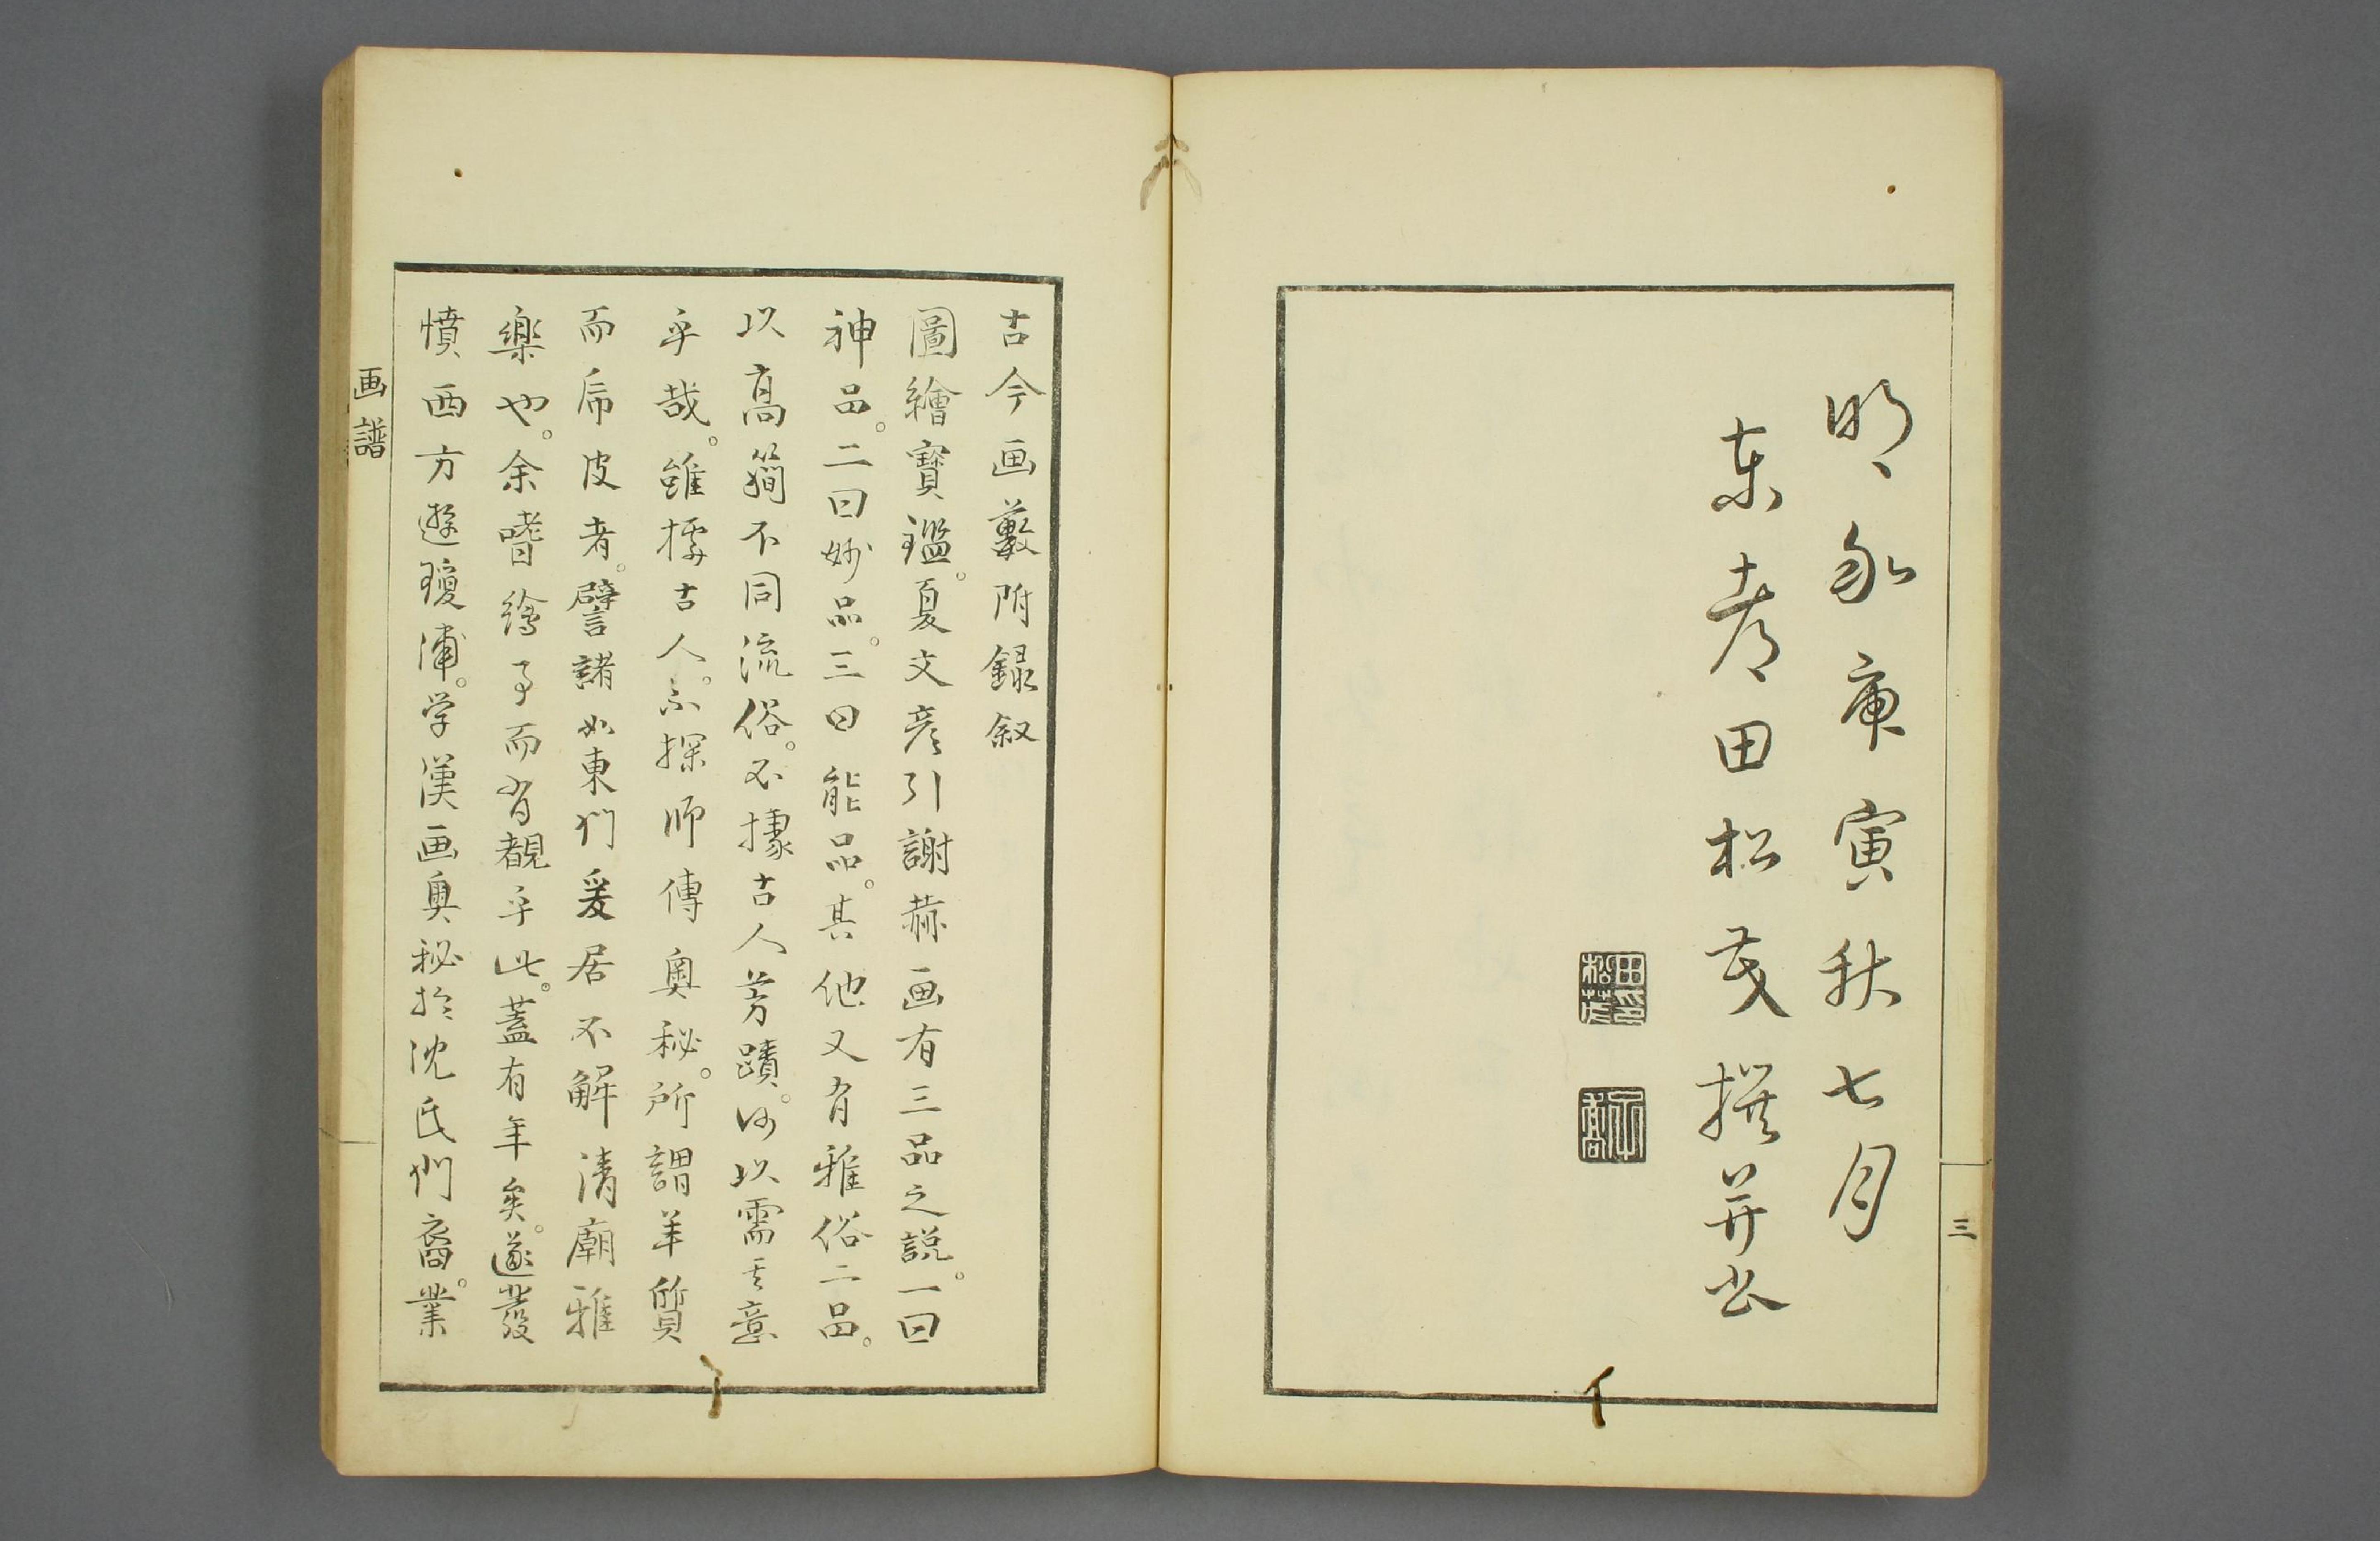 明和庚寅秋七月
東都田松茂撰并書
田印松茂
三
古今画藪附録叙
圖繪寶鑑。夏文彦引謝赫画有三品之説。一曰
神品。二曰妙品。三曰能品。其他又有雅俗二品。
以高簡不同流俗。不據古人芳蹟。何以需其意
乎哉。雖據古人。不探師傳奥秘。所謂羊質
而虎皮者。譬諸如東門爰居不解清廟雅
樂也。余嗜繪事而有覩乎此。蓋有年矣。遂發
憤西方遊瓊浦。学漢画奥秘於沈氏門裔。業
画譜